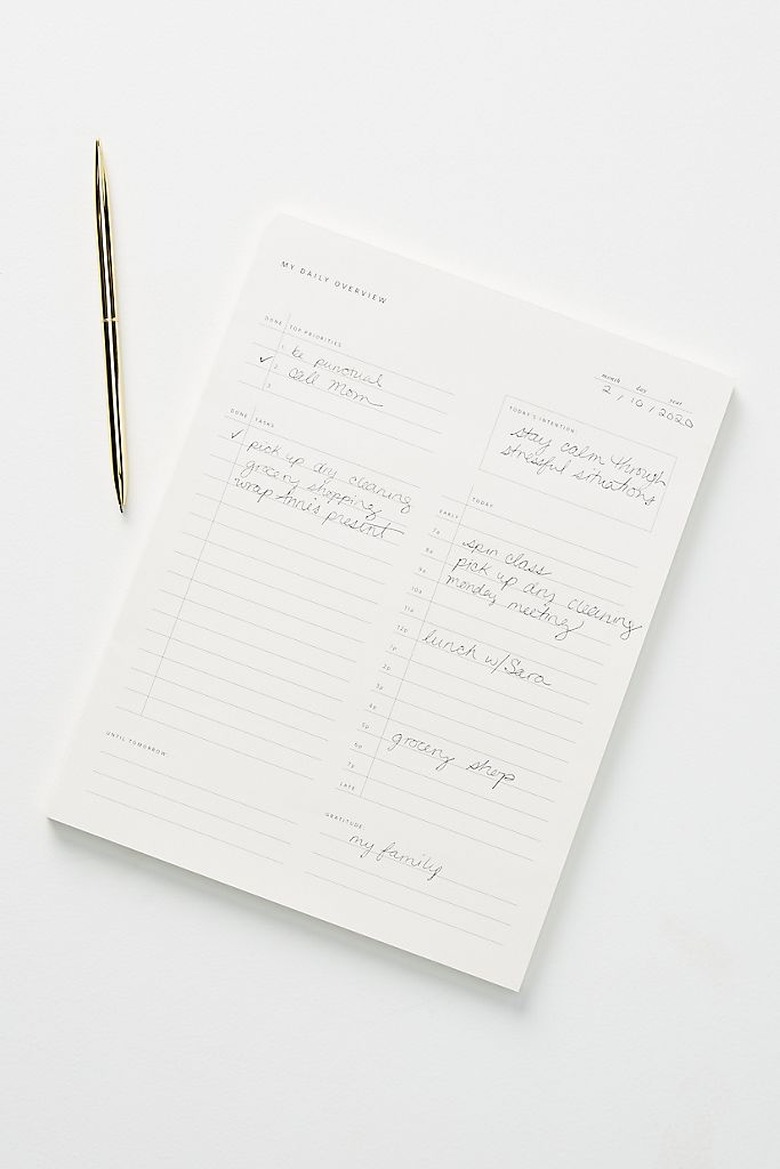 MY DAILY OVERVIEW
month day year
2 / 10 / 2020
DONE TOP PRIORITIES
1 be punctual
✓ 2 call Mom
3
TODAY'S INTENTION
stay calm through
stressful situations
DONE TASKS
✓ pick up dry cleaning
grocery shopping
wrap Ann's present
TODAY
EARLY
7a spin class
8a pick up dry cleaning
9a monday meeting
10a
11a
12p lunch w/Sara
1p
2p
3p
4p
5p grocery shop
6p
7p
LATE
UNTIL TOMORROW
GRATITUDE
my family